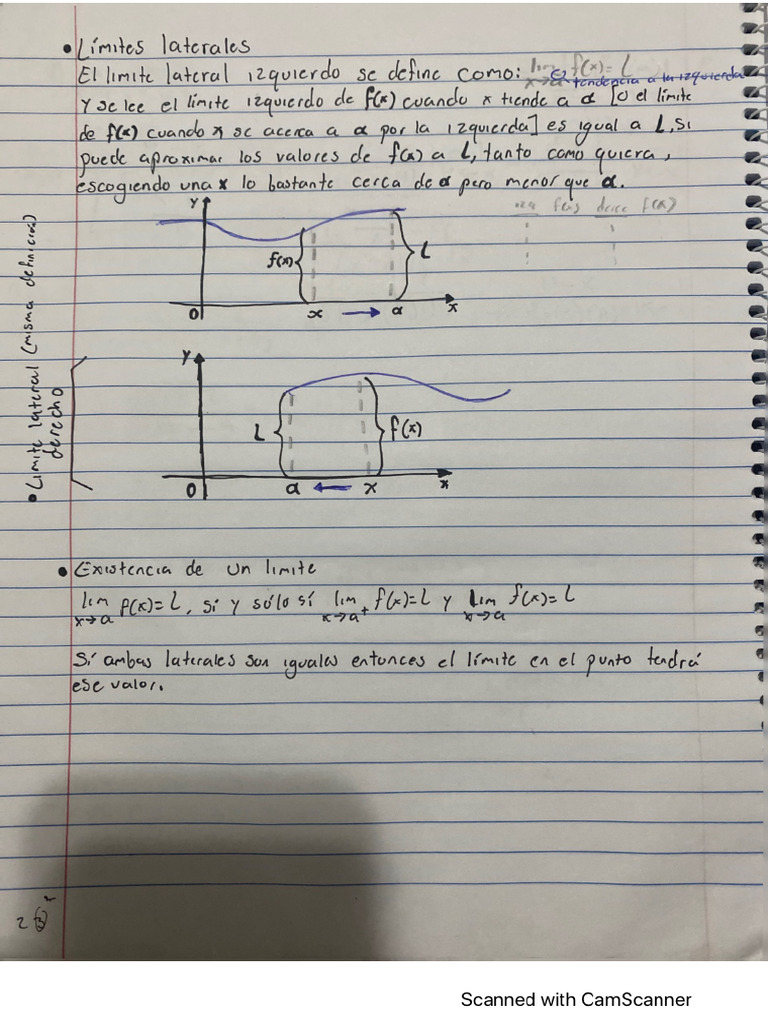 • Límites laterales
El limite lateral izquierdo se define como: lim x→a⊖ f(x)=L
tendencia a la izquierda
Y se lee el límite izquierdo de f(x) cuando x tiende a a [o el límite
de f(x) cuando x se acerca a a por la izquierda] es igual a L, si
puede aproximar los valores de f(x) a L, tanto como quiera,
escogiendo una x lo bastante cerca de a pero menor que a.
y
f(x)
L
0 x → a x
• Limite lateral (misma definición)
derecho
y
L
f(x)
0 a ← x x
• Existencia de un limite
lim x→a f(x)=L, si y sólo sí lim x→a+ f(x)=L y lim x→a f(x)=L
Sí ambas laterales son iguales entonces el límite en el punto tendrá
ese valor.
2
Scanned with CamScanner